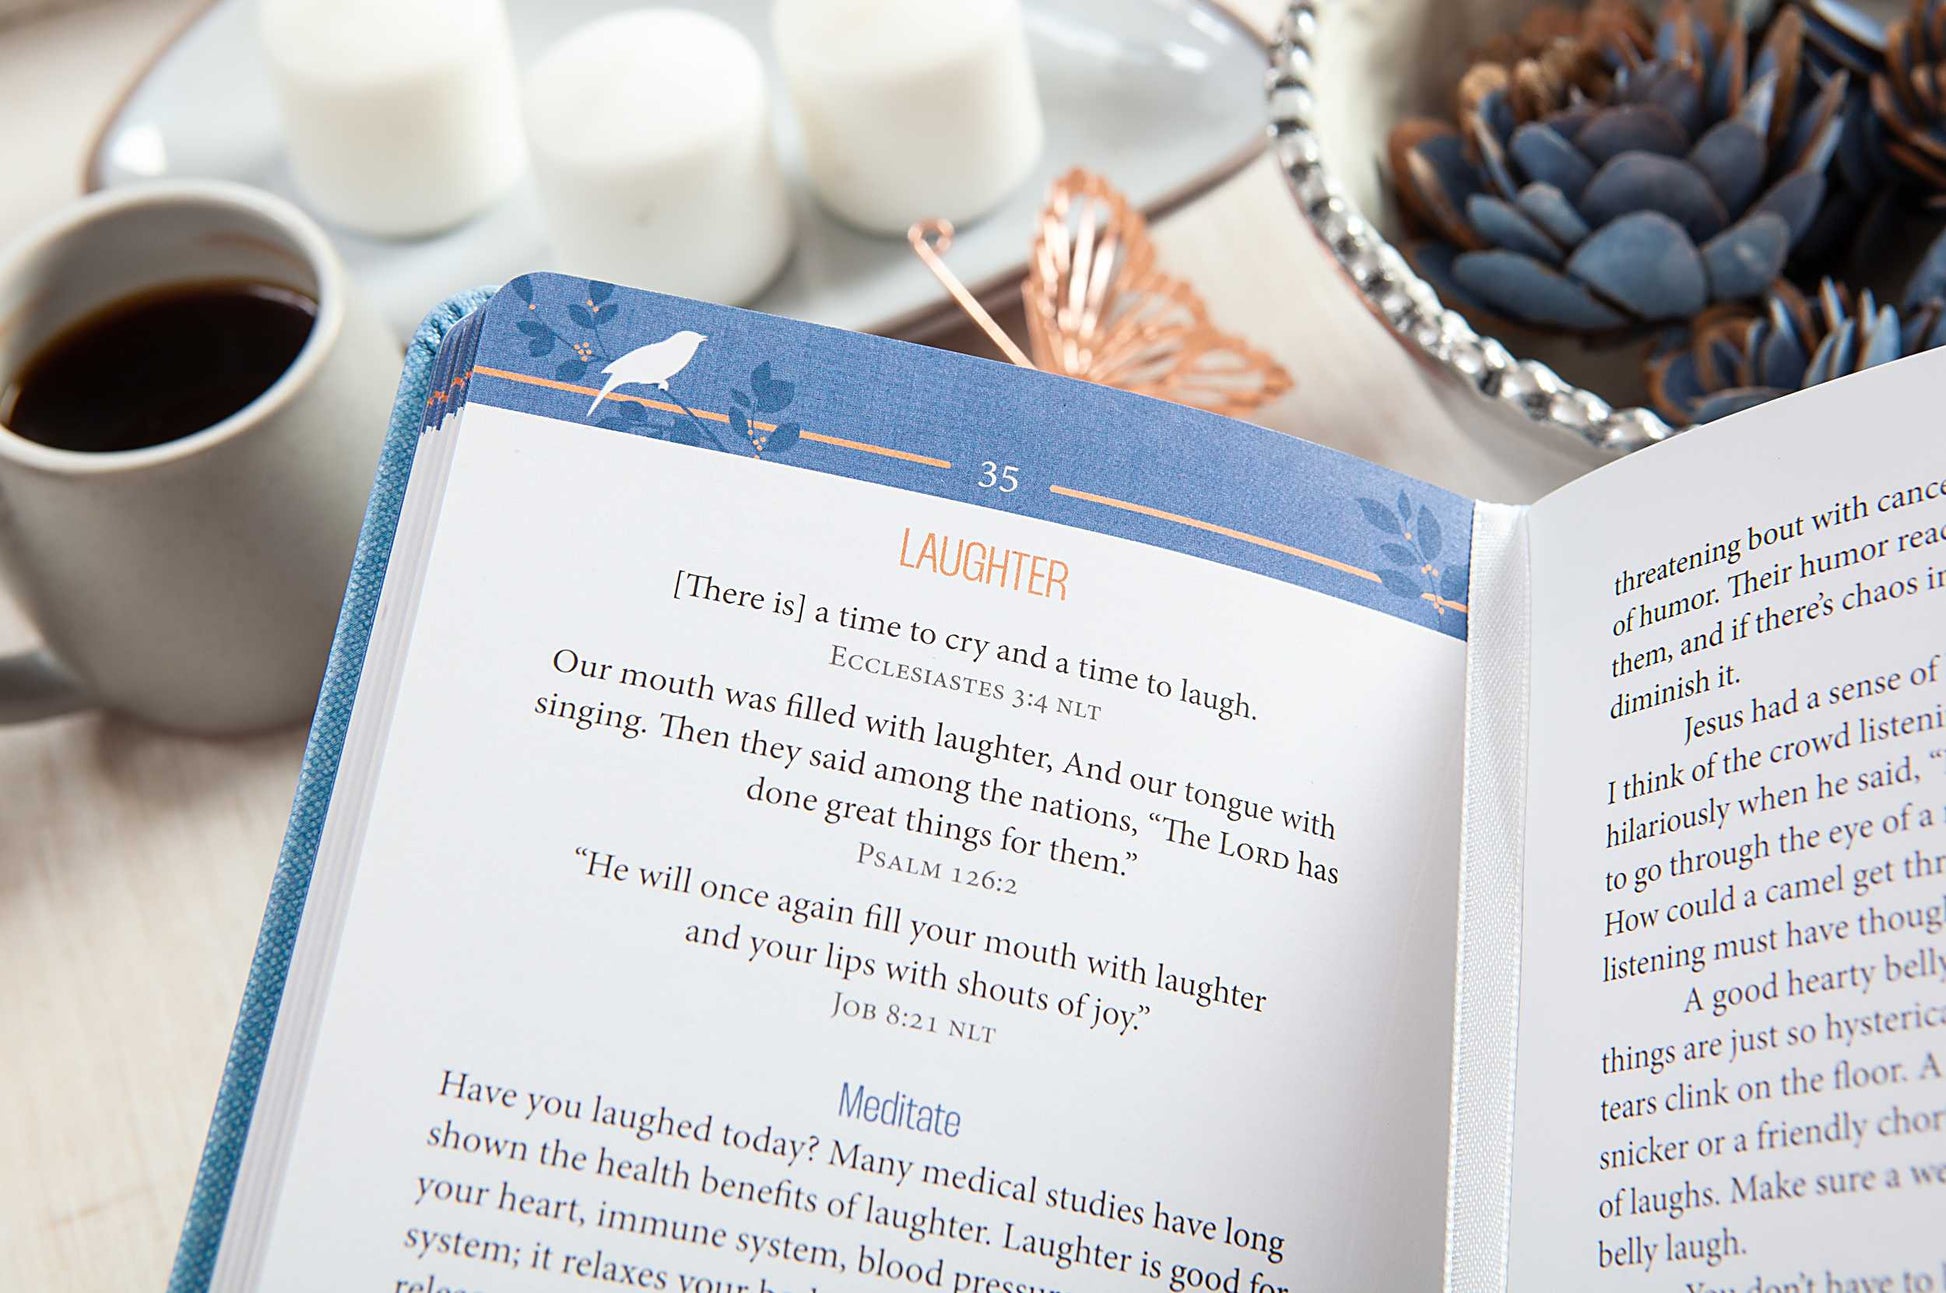 35
LAUGHTER
[There is] a time to cry and a time to laugh.
Ecclesiastes 3:4 NLT
Our mouth was filled with laughter, And our tongue with
singing. Then they said among the nations, “The Lord has
done great things for them.”
Psalm 126:2
“He will once again fill your mouth with laughter
and your lips with shouts of joy.”
Job 8:21 NLT
Meditate
Have you laughed today? Many medical studies have long
shown the health benefits of laughter. Laughter is good for
your heart, immune system, blood
system; it relaxes your
threatening bout with
of humor. Their humor
them, and if there’s chaos
diminish it.
Jesus had a sense of
I think of the crowd
hilariously when he said,
to go through the eye of a
How could a camel get
listening must have
A good hearty
things are just so
tears clink on the floor. A
snicker or a friendly
of laughs. Make sure a
belly laugh.
You don’t have to